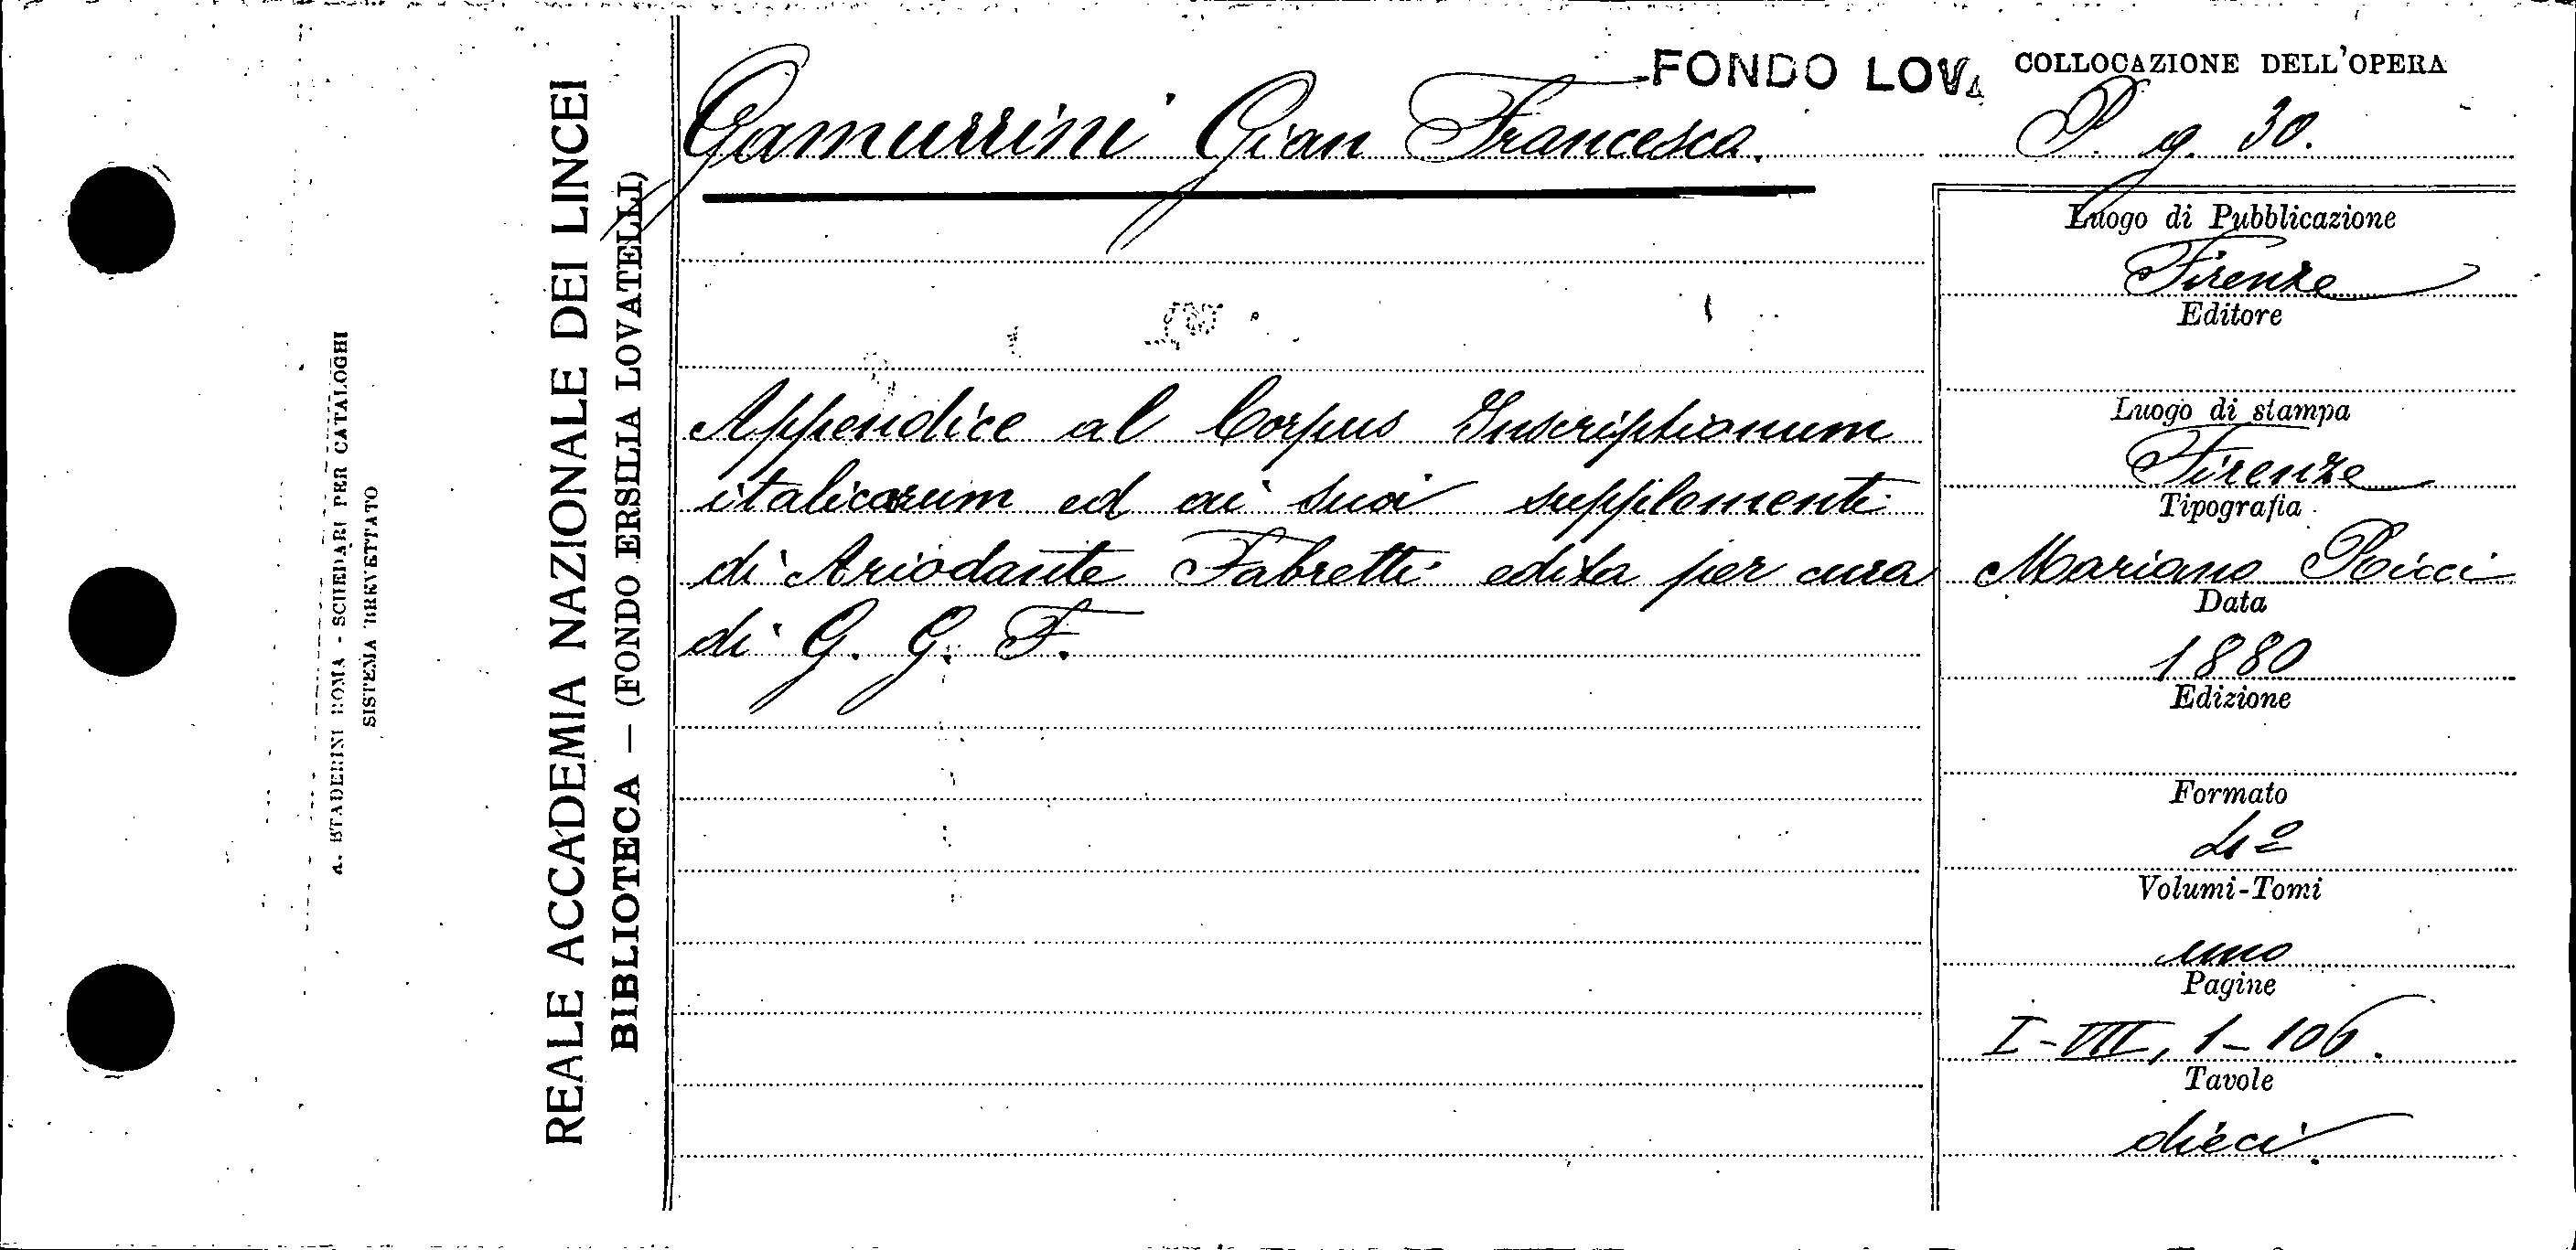 FONDO LOVA
COLLOCAZIONE DELL'OPERA
Gamurrini Gian Francesco.
P. g. 30.
Appendice al Corpus Inscriptionum
italicorum ed ai suoi supplementi
di Ariodante Fabretti edita per cura
di G. G. F.
Luogo di Pubblicazione
Firenze
Editore
Luogo di stampa
Firenze
Tipografia
Mariano Ricci
Data
1880
Edizione
Formato
4º
Volumi-Tomi
uno
Pagine
I-VII, 1-106.
Tavole
dieci.
REALE ACCADEMIA NAZIONALE DEI LINCEI
BIBLIOTECA — (FONDO ERSILIA LOVATELLI)
A. STADERINI ROMA - SCHEDARI PER CATALOGHI
SISTEMA BREVETTATO